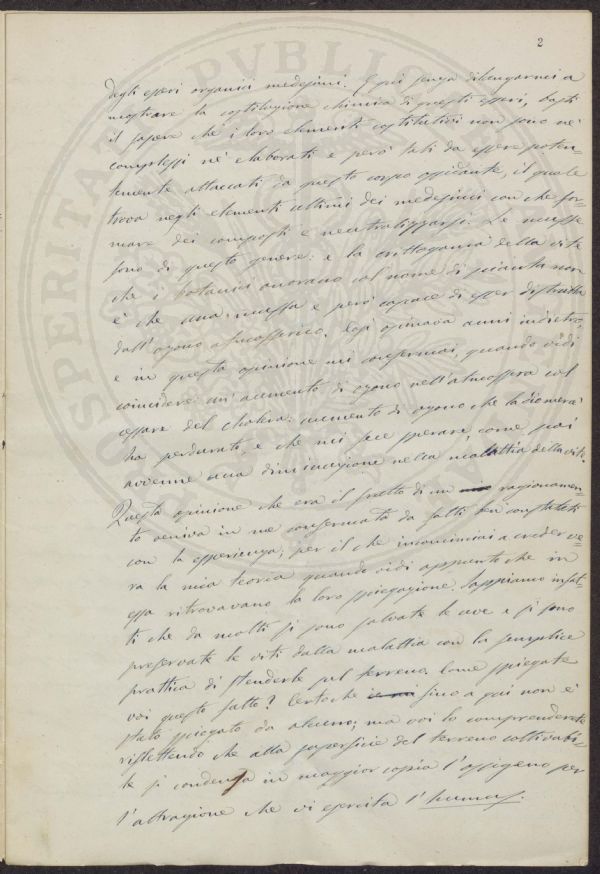 2
degli esseri organici medesimi. E qui senza dilungarmi a
mostrare la costituzione chimica di questi esseri, basti
il sapere che i loro elementi costitutivi non sono nè
complessi nè elaborati e però tali da essere poten=
temente attaccati da questo corpo ossidante, il quale
trova negli elementi ultimi dei medesimi con che for=
mare dei composti e neutralizzarsi. Le muffe
sono di questo genere: e la crittogama della vite
che i botanici onorano col nome di pianta non
è che una muffa e però capace di esser distrutta
dall'ozono atmosferico. Così opinava anni indietro,
e in questa opinione mi confermai, quando vidi
coincidere un aumento di ozono nell'atmosfera col
cessare del cholera: aumento di ozono che la Diomerà
ha perdurato, e che mi fece sperare, come poi
avvenne una diminuzione nella malattia della vite.
Questa opinione che era il frutto di un ragionamen=
to veniva in me confermata da fatti ben constatati
con la esperienza; per il che incominciai a creder ve=
ra la mia teorica quando vidi appunto che in
essa ritrovavano la loro spiegazione. Sappiamo infat=
ti che da molti si sono salvate le uve e si sono
preservate le viti dalla malattia con la semplice
prattica di stenderle sul terreno. Come spiegate
voi questo fatto? Certo che sino a qui non è
stato spiegato da alcuno; ma voi lo comprenderete
riflettendo che alla superficie del terreno coltivabi=
le si condensa in maggior copia l'ossigeno per
l'attrazione che vi esercita l'humus.